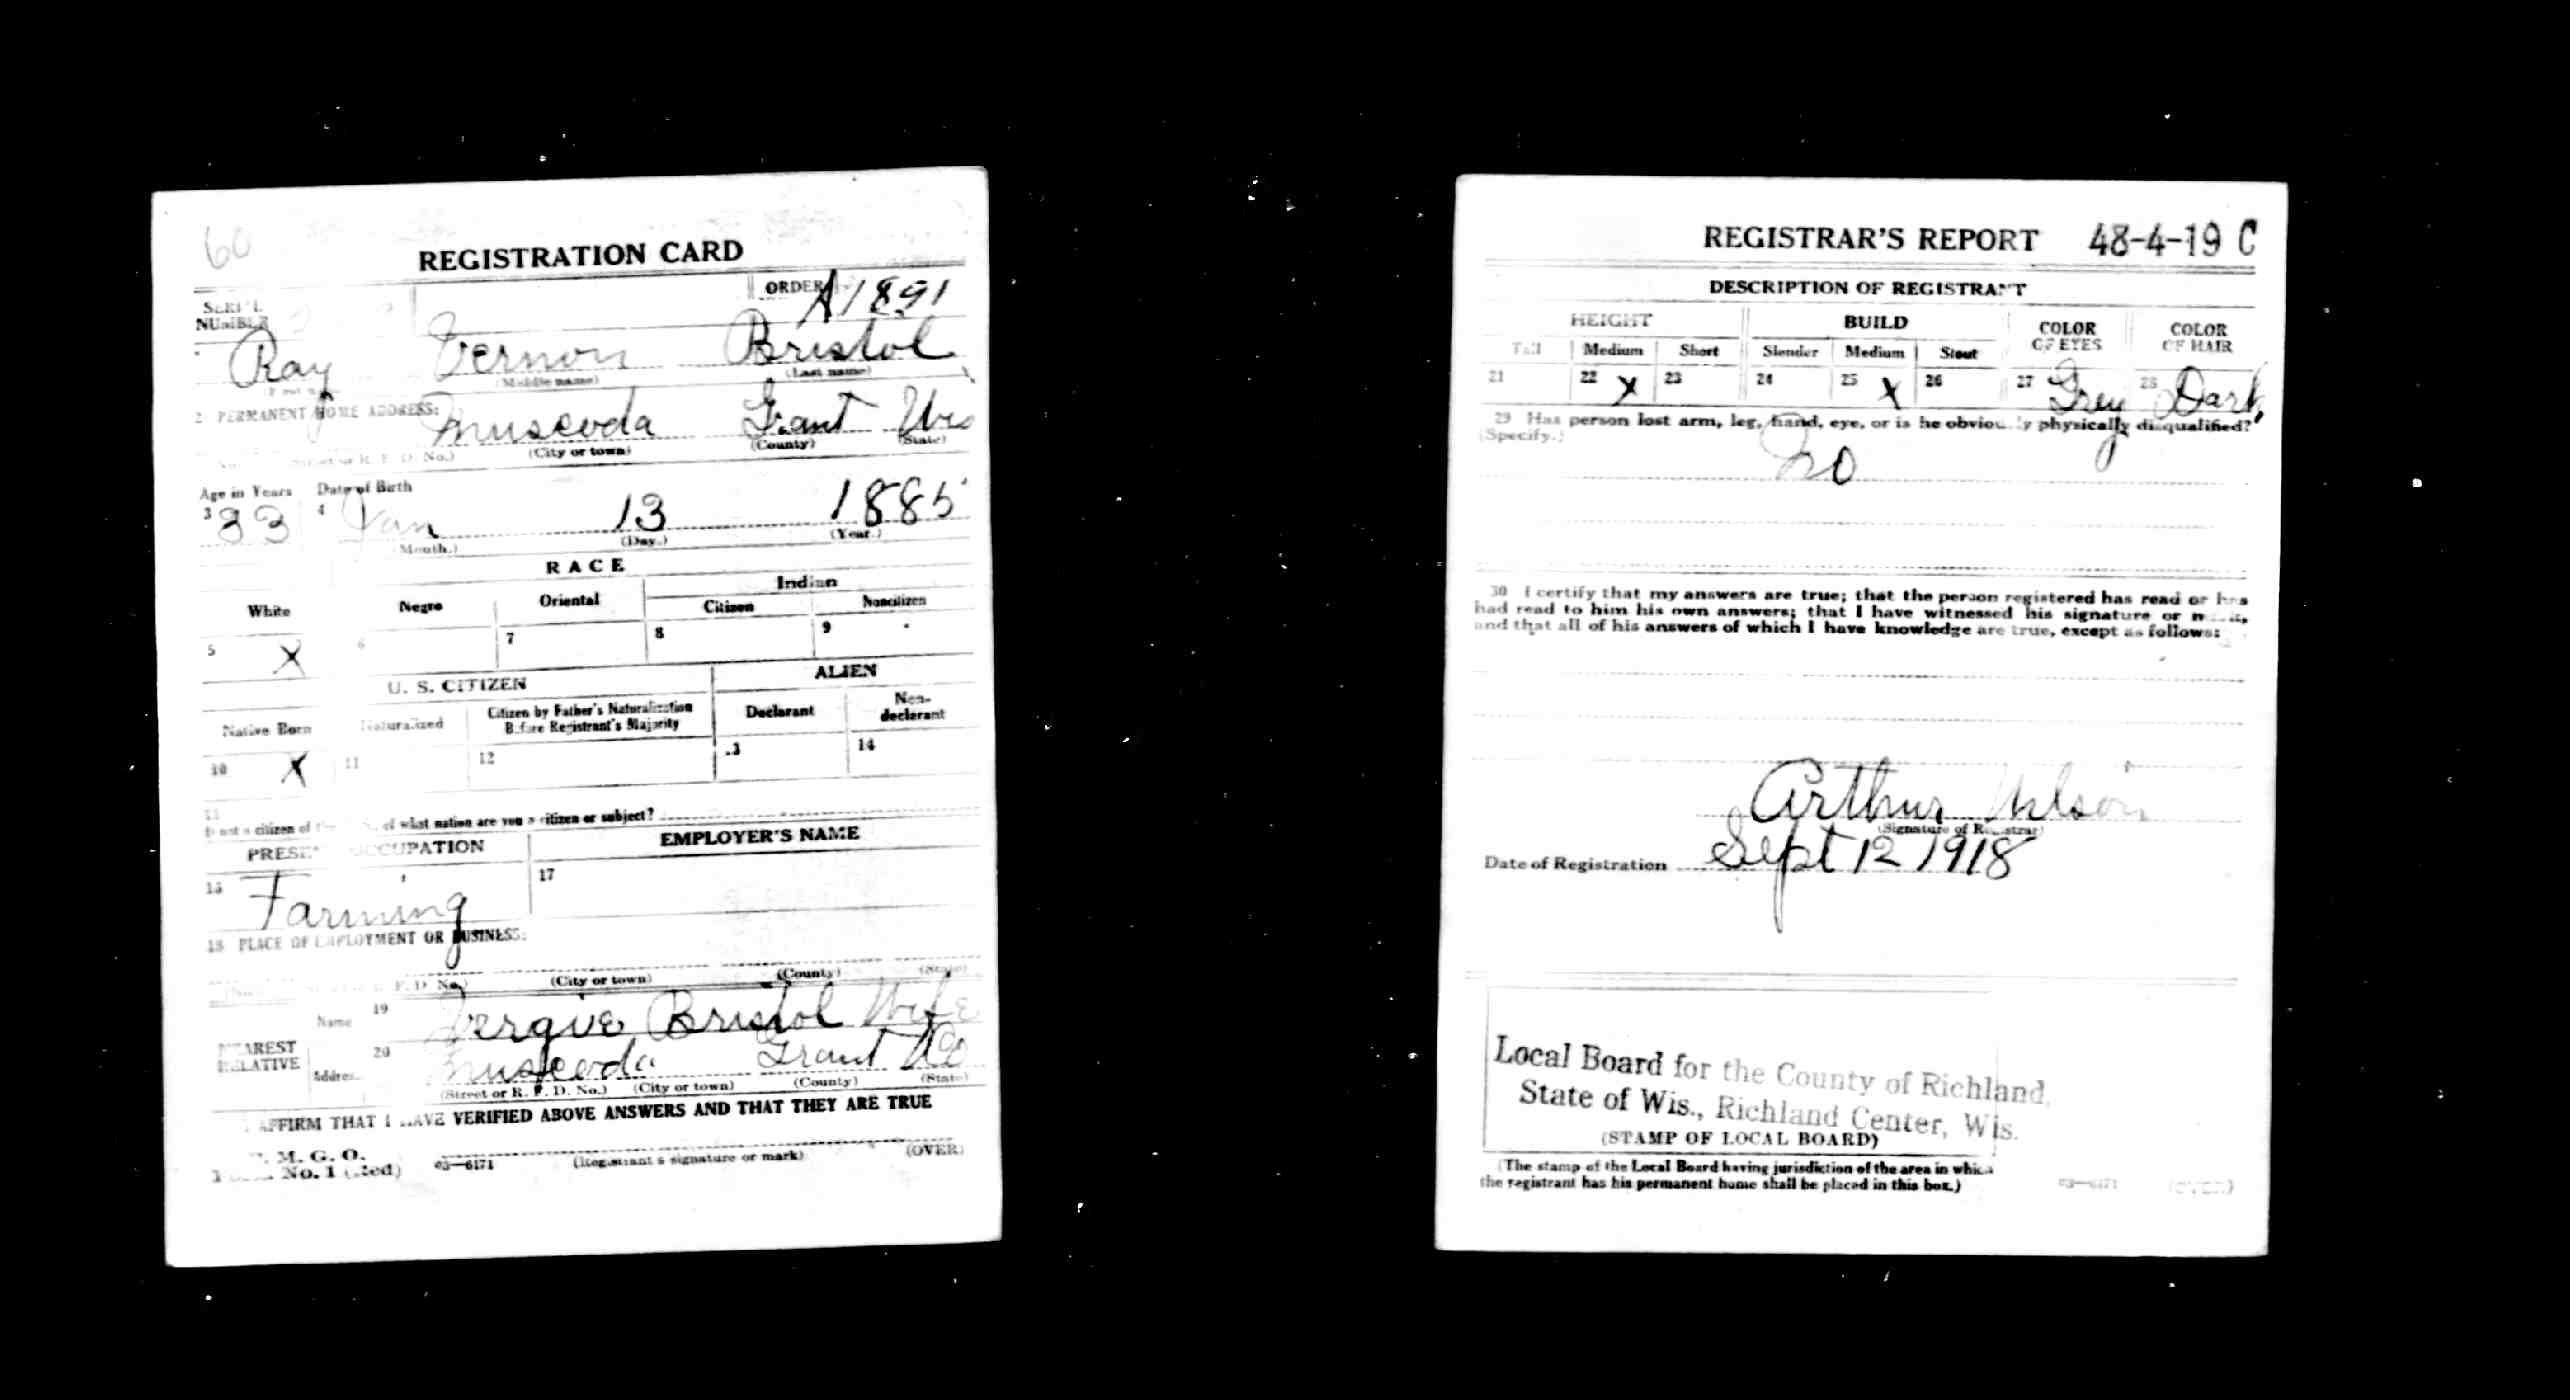 60
REGISTRATION CARD
SERIAL NUMBER
ORDER A1891
Ray Vernon Bristol
(Middle name) (Last name)
2 PERMANENT HOME ADDRESS:
Muscoda Grant Wis
(Street or R. F. D. No.) (City or town) (County) (State)
Age in Years Date of Birth
3 33 4 Jan 13 1885
(Month.) (Day.) (Year.)
RACE
White Negro Oriental Indian
Citizen Noncitizen
5 X 6 7 8 9
U. S. CITIZEN ALIEN
Native Born Naturalized Citizen by Father's Naturalization Before Registrant's Majority Declarant Non-declarant
10 X 11 12 .3 14
15
If not a citizen of the of what nation are you a citizen or subject?
PRESENT OCCUPATION EMPLOYER'S NAME
16 Farming 17
18 PLACE OF EMPLOYMENT OR BUSINESS:
R. F. D. No.) (City or town) (County) (State)
NEAREST RELATIVE
Name 19 Bristol Wife
Address 20 Muscoda Grant
(Street or R. F. D. No.) (City or town) (County) (State)
I AFFIRM THAT I HAVE VERIFIED ABOVE ANSWERS AND THAT THEY ARE TRUE
P. M. G. O.
Form No. 1 (Red) 03—6171 (Registrant's signature or mark) (OVER)
REGISTRAR'S REPORT 48-4-19 C
DESCRIPTION OF REGISTRANT
HEIGHT BUILD COLOR OF EYES COLOR OF HAIR
Tall Medium Short Slender Medium Stout
21 22 X 23 24 25 X 26 27 Grey 28 Dark
29 Has person lost arm, leg, hand, eye, or is he obviously physically disqualified?
(Specify.)
No
30 I certify that my answers are true; that the person registered has read or has
had read to him his own answers; that I have witnessed his signature or mark,
and that all of his answers of which I have knowledge are true, except as follows:
Arthur
(Signature of Registrar)
Date of Registration Sept 12 1918
Local Board for the County of Richland,
State of Wis., Richland Center, Wis.
(STAMP OF LOCAL BOARD)
(The stamp of the Local Board having jurisdiction of the area in which
the registrant has his permanent home shall be placed in this box.)
03—6171 (OVER)